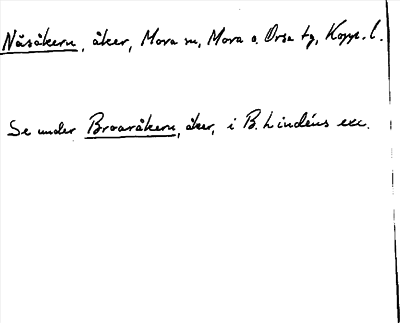 Näsåkern, åker, Mora sn, Mora o. Orsa tg, Kopp. l.
Se under Broaråkern, åker, i B. Lindéns exc.